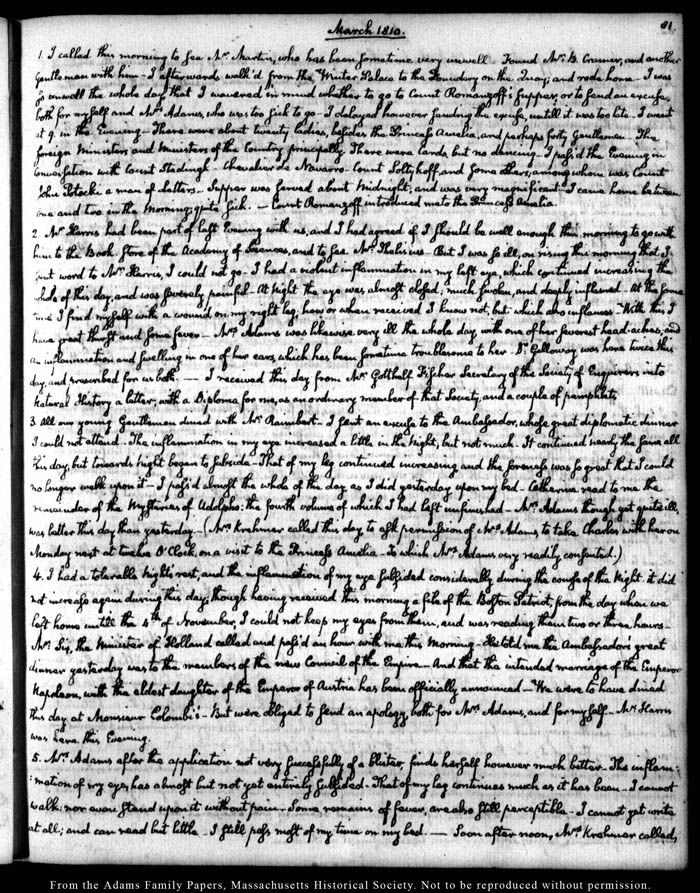 March 1810.
81
1. I called this morning to see Mr. Martin, who has been sometime very unwell. Found Mr. B. Cramer, and another
Gentleman with him - I afterwards walk'd from the Winter Palace to the Foundery on the Quay; and rode home - I was
so unwell the whole day, that I wavered in mind whether to go to Count Romanzoff's supper, or to send an excuse,
both for myself and Mrs. Adams, who was too sick to go - I delayed however sending the excuse, untill it was too late. I went
at 9. in the Evening - There were about twenty Ladies, besides the Princess Amelia, and perhaps forty Gentlemen. The
foreign Ministers and Ministers of the Country principally. There were Cards, but no dancing - I pass'd the Evening in
conversation with Count Stedingk - Chevalier de Navarro - Count Soltykoff, and some others, among whom was Count
John Potocki a man of Letters - Supper was served about Midnight; and was very magnificent. I came home between
one and two in the Morning; quite sick. - Count Romanzoff introduced me to the Princess Amelia.
2. Mr. Harris had been part of last Evening with us, and I had agreed if I should be well enough this morning to go with
him to the Book-store of the Academy of Sciences, and to see Mr. - But I was so ill, on rising this morning that I
sent word to Mr. Harris, I could not go - I had a violent inflammation in my left eye, which continued increasing the
whole of this day, and was severely painful - At Night the eye was almost closed, much swoln, and deeply inflamed. At the same
time I find myself with a wound on my right leg, how or when received I know not, but which also inflames - With this I
have great thirst and some fever - Mrs. Adams was likewise very ill the whole day, with one of her severest head-aches, and
an inflammation and swelling in one of her ears, which has been sometime troublesome to her - Dr. Galloway, was here twice this
day, and prescribed for us both. — I received this day from Mr. Gotthelf Fischer Secretary of the Society of Enquirers into
Natural History a letter, with a Diploma for me, as an ordinary member of that Society, and a couple of pamphlets.
3. All our young Gentlemen dined with Mr. Raimbert - I sent an excuse to the Ambassador, whose great diplomatic dinner
I could not attend - The inflammation in my eye increased a little in the Night, but not much - It continued nearly the same all
this day; but towards Night began to subside - That of my leg continued increasing and the soreness was so great that I could
no longer walk upon it - I pass'd almost the whole of the day as I did yesterday upon my bed - Catherine read to me the
remainder of the Mysteries of Udolpho; the fourth volume of which I had left unfinished - Mrs. Adams though yet quite ill,
was better this day than yesterday - (Mrs. Krehmer called this day to ask permission of Mrs. Adams to take Charles with her on
Monday next at twelve O'Clock, on a visit to the Princess Amelia - to which Mrs. Adams very readily consented.)
4. I had a tolerable Night's rest, and the inflammation of my eye subsided considerably during the course of the Night. it did
not increase again during this day; though having received this morning a file of the Boston Patriot, from the day when we
left home untill the 4th. of November, I could not keep my eyes from them, and was reading them two or three hours -
Mr. Six, the Minister of Holland called and pass'd an hour with me this Morning - He told me the Ambassador's great
dinner yesterday was to the members of the new Council of the Empire - And that the intended marriage of the Emperor
Napoleon, with the eldest daughter of the Emperor of Austria has been officially announced - We were to have dined
this day at Monsieur Colombi's - But were obliged to send an apology, both for Mrs. Adams, and for myself - Mr. Harris
was here this Evening.
5. Mrs. Adams after the application not very successfully of a blister, finds herself however much better - The inflam-
mation of my eyes, has almost but not yet entirely subsided - That of my leg continues much as it has been - I cannot
walk, nor even stand upon it without pain - Some remains of fever, are also still perceptible - I cannot yet write
at all; and can read but little - I still pass most of my time on my bed. — Soon after noon, Mrs. Krehmer called,
From the Adams Family Papers, Massachusetts Historical Society. Not to be reproduced without permission.